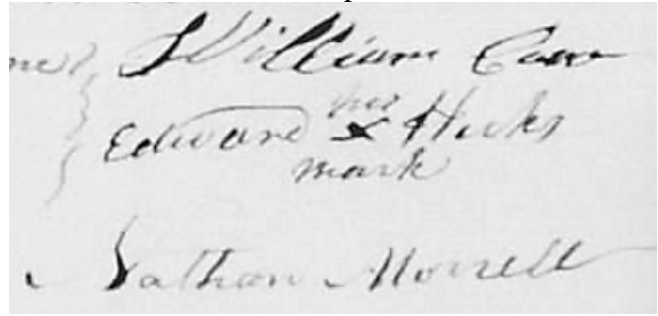 William
his
Edward x Hicks
mark
Nathan Morrell